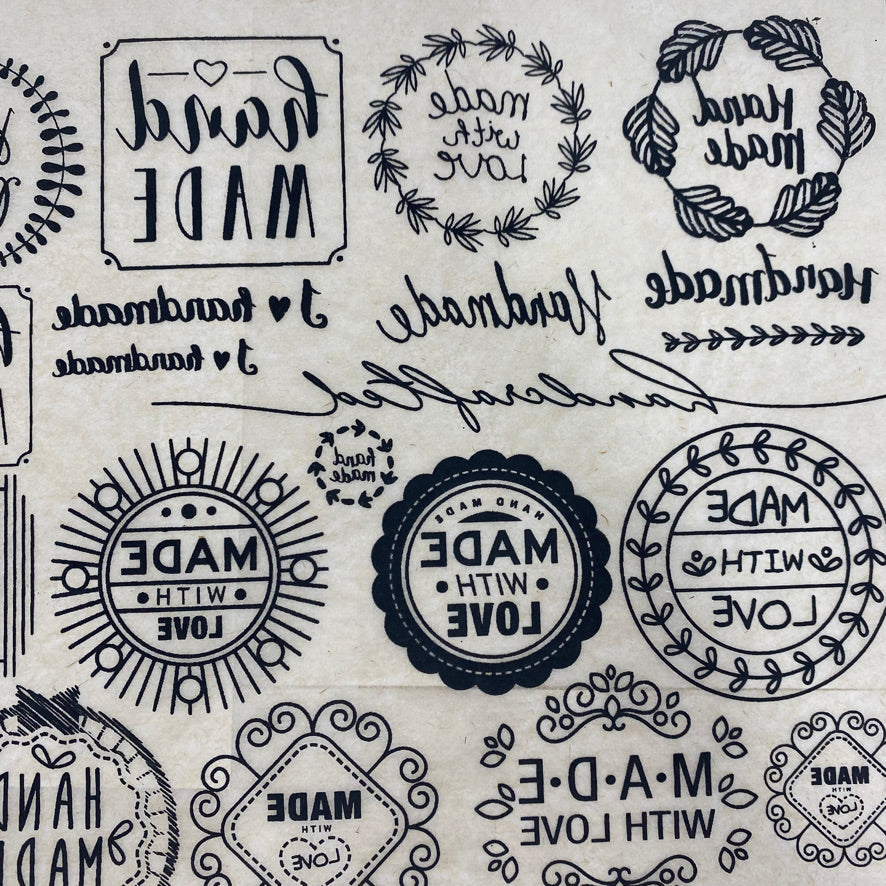 hand
MADE
made
with
Love
Hand
made
I ♥ handmade
Handmade
Handmade
I ♥ handmade
handcrafted
hand
made
MADE
• WITH •
LOVE
HAND MADE
MADE
• WITH •
LOVE
MADE
WITH
LOVE
HAND
MADE
MADE
WITH
LOVE
M•A•D•E
WITH LOVE
MADE
WITH
LOVE